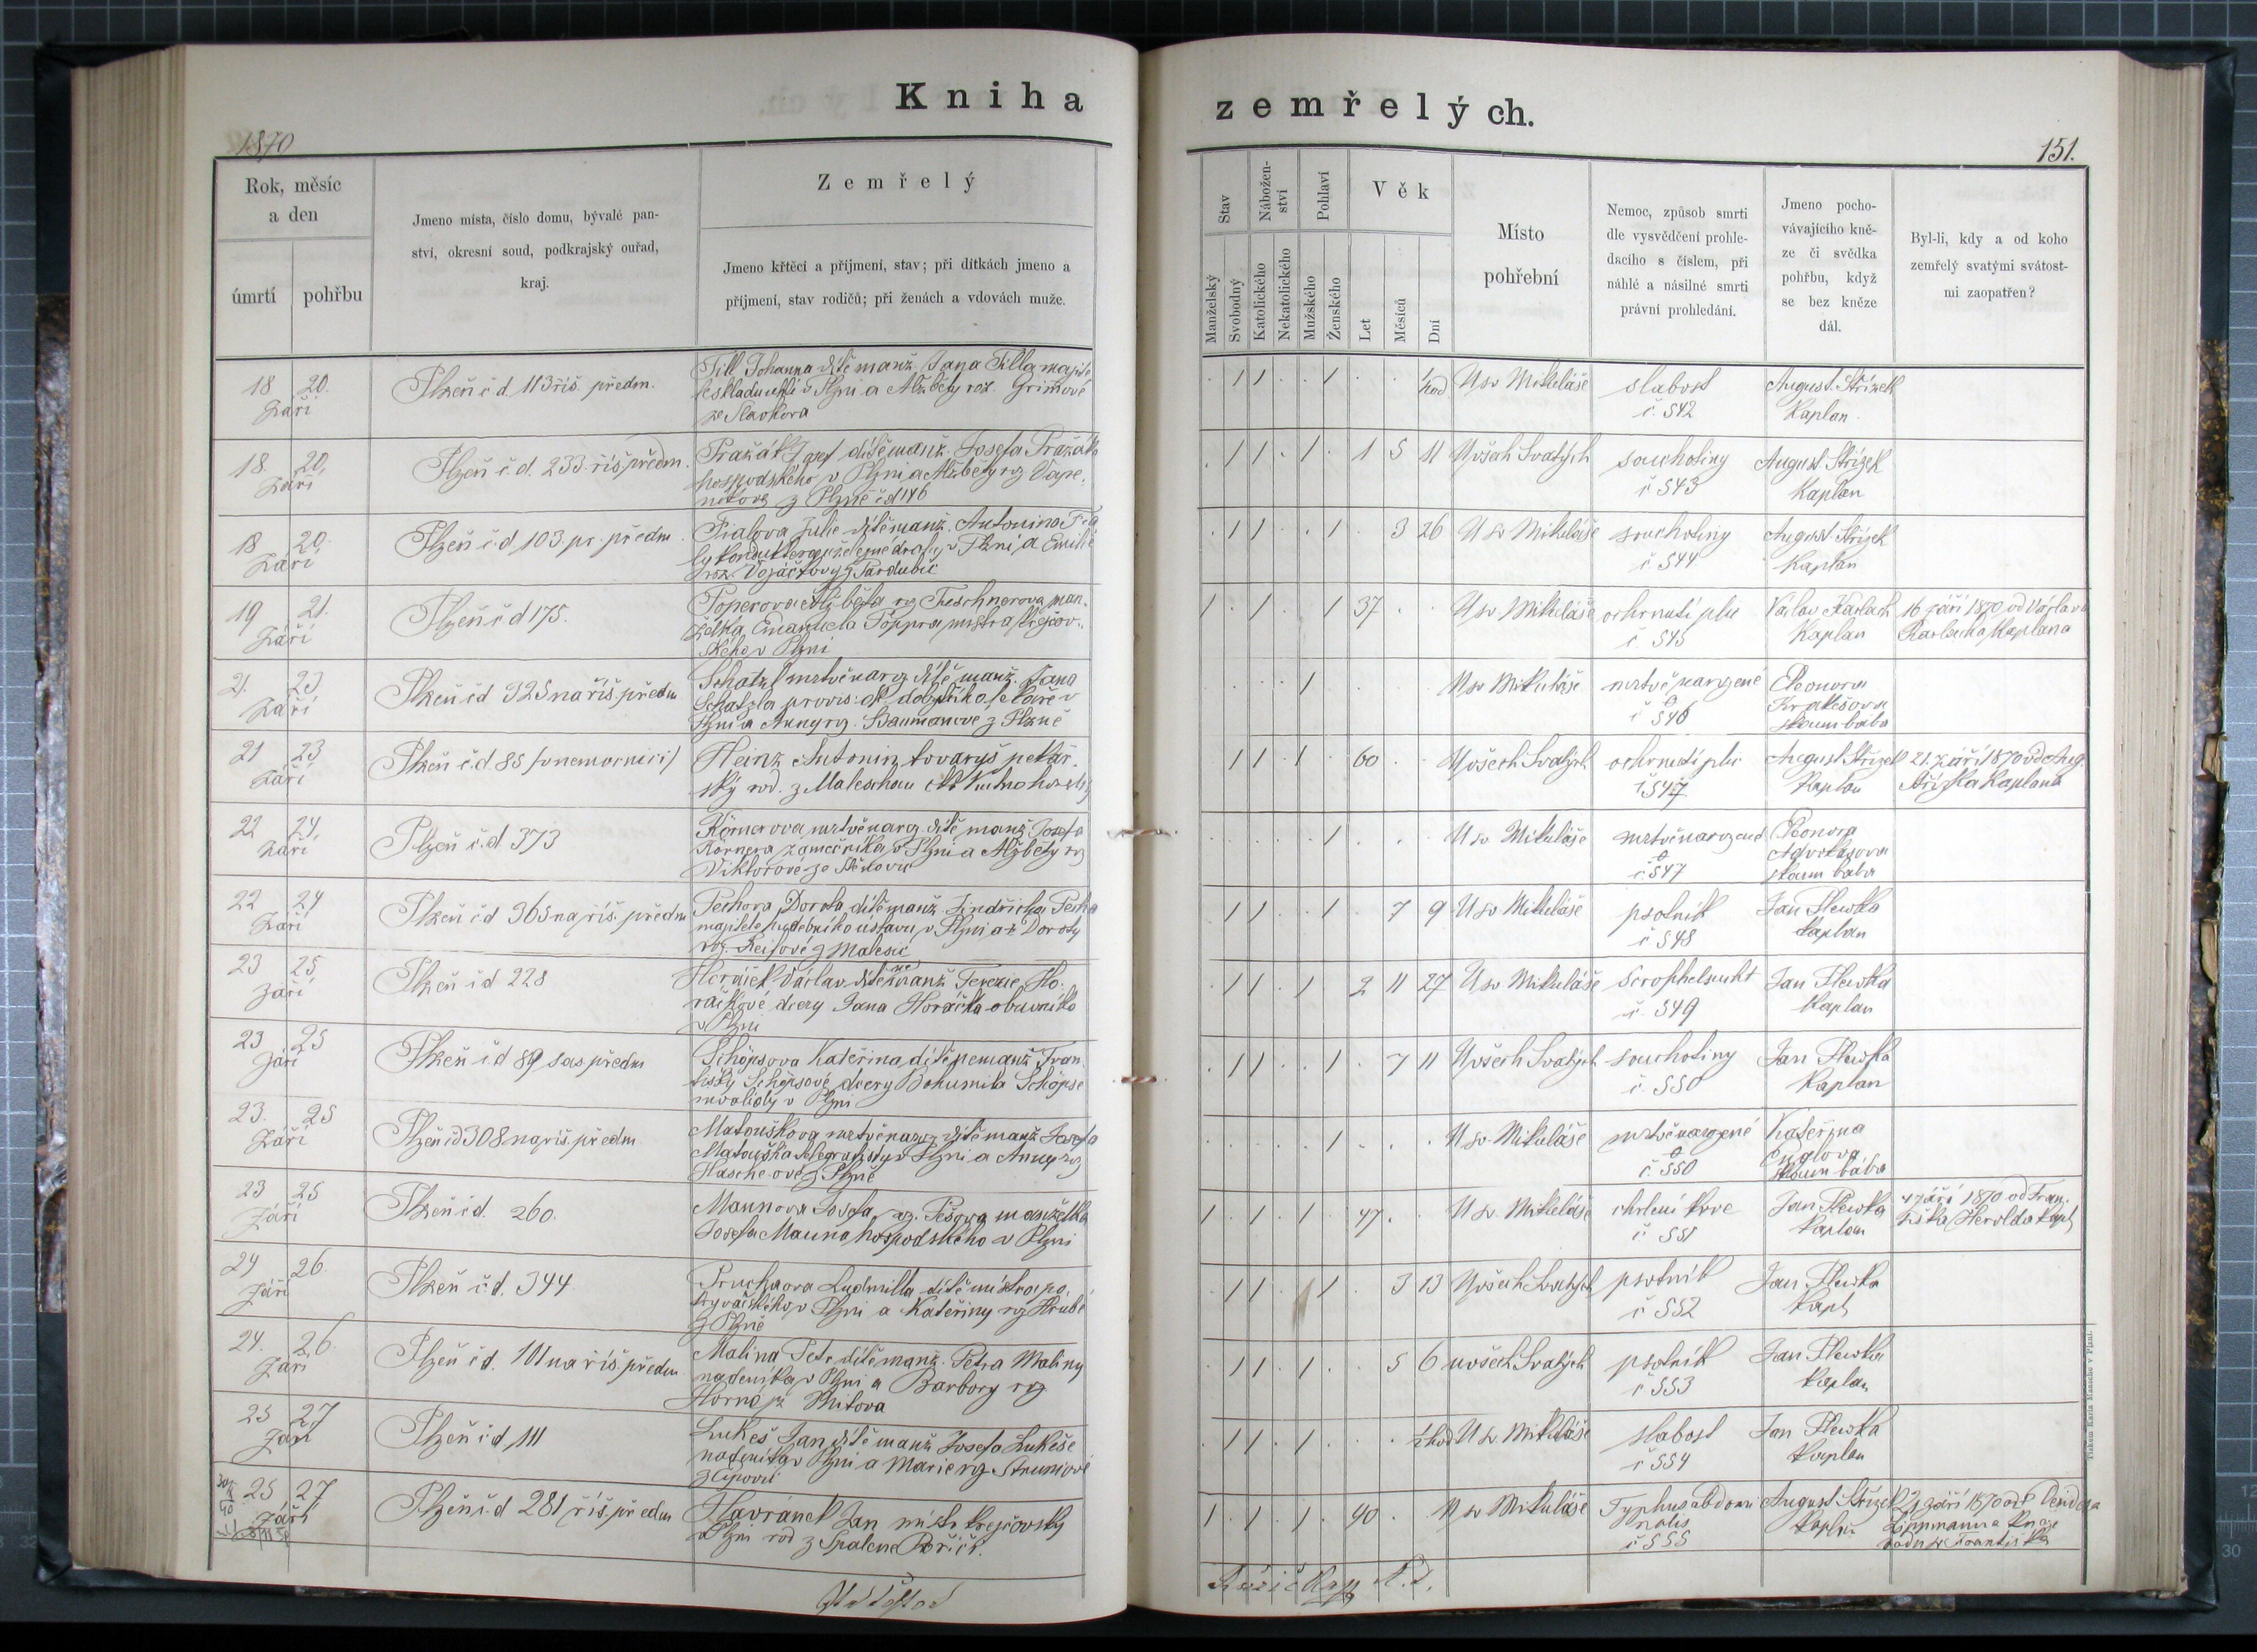 Kniha zemřelých.
1870
151.
Rok, měsíc a den
úmrtí
pohřbu
Jmeno místa, číslo domu, bývalé pan-
ství, okresní soud, podkrajský ouřad,
kraj.
Zemřelý
Jmeno křtěcí a příjmení, stav; při dítkách jmeno a
příjmení, stav rodičů; při ženách a vdovách muže.
Stav
Manželský
Svobodný
Nábožen-
ství
Katolického
Nekatolického
Pohlaví
Mužského
Ženského
Věk
Let
Měsíců
Dní
Místo
pohřební
Nemoc, způsob smrti
dle vysvědčení prohle-
dacího s číslem, při
náhlé a násilné smrti
právní prohledání.
Jmeno pocho-
vávajícího kně-
ze či svědka
pohřbu, když
se bez kněze
dál.
Byl-li, kdy a od koho
zemřelý svatými svátost-
mi zaopatřen?
18 20.
Září
Plzeň č d. 113 říš. předm.
Till Johanna dítě manž. Jana Tilla
v Plzni a Alžběty roz. Grimové
ze Slavkova
U sv Mikuláše
slabost
č. 542
August. Střízek
Kaplan
18. 20.
Září
Plzeň č. d. 233. říš předm.
Pražák Josef dítě manž. Josefa Pražáka
hospodského v Plzni a Alžběty rz Vape-
z Plzně č d 146
1 5 11
U všech Svatých
souchotiny
č 543
August Střízek
Kaplan
18 20.
Září
Plzeň č. d 103. pr. předm.
Fialova Julie dítě manž. Antonina Fia
v Plzni a Emilie
roz. Vojáčkovy z Pardubic
3 26
U sv Mikuláše
souchotiny
č 544
August Střízek
Kaplan
19 21.
Září
Plzeň č d 175.
Poperova Alžběta rz Tuschnerova man-
želka Emanuela mistra krejčov-
ského v Plzni
37
U sv. Mikuláše
ochrnutí plic
č. 545
Václav Karlach
Kaplan
16 září 1870 od Václava
Karlacha Kaplana
21. 23
Září
Plzeň č d 325 na říš. předm
Schatzl mrtvě narz dítě manž. Jana
Schatzla
Plzni a Anny rz. Baumanové z Plzně
U sv Mikuláše
mrtvě narzené
č 546
Eleonora
baba
21 23
Září
Plzeň č. d. 85 /v nemocnici/
Heinz Antonin tovaryš pekař-
ský rod. z Maleschau
60
U všech Svatých
ochrnutí plic
č 547
August Střízek
Kaplan
21. září 1870 od Aug.
Střízka Kaplana
22 24
Září
Plzeň č. d 373
Körnerova mrtvě narz. dítě manž Josefa
Körnera zámečníka v Plzni a Alžběty rz
Viktorové ze
U sv Mikuláše
mrtvě narzené
č. 547
Eleonora
baba
22 24
Září
Plzeň č d 365 na říš. předm
Pechova Dorota dítě manž. Jindřicha Pecha
majitele hudebního ústavu v Plzni a Doroty
rz. Reisové z Malesic
7 9
U sv Mikuláše
psotník
č 548
Jan Hlewka
Kaplan
23 25
Září
Plzeň č d 228
Horáček Václav dítě ne manž Terezie Ho-
ráčkové dcery Jana Horáčka obuvníka
v Plzni
2 11 27
U sv Mikuláše
Scrophelsucht
č. 549
Jan Hlewka
Kaplan
23 25
Září
Plzeň č d 89 sas předm
Schöpsova Kateřina dítě nemanž Fran-
tišky Schöpsové dcery Bohumila Schöpse
invalidy v Plzni
7 11
U všech Svatých
souchotiny
č. 550
Jan Hlewka
Kaplan
23. 25
Září
Plzeň č d 308 na říš. předm
Matouškova mrtvě narz dítě manž Josefa
Matouška telegrafisty v Plzni a Anny rz
z Plzně
U sv. Mikuláše
mrtvě narzené
č. 550
Kateřina
baba
23 25
Září
Plzeň č d. 260.
Maunova Josefa, rz. Pešova manželka
Josefa Mauna hospodského v Plzni
47.
U sv. Mikuláše
chrlení krve
č 551
Jan Hlewka
Kaplan
4 září 1870 od Fran-
tiška Herolda Kapl
24 26.
Září
Plzeň č. d. 344
Ludmilla dítě mistra po-
v Plzni a Kateřiny rz Hrubé
z Plzně
3 13
U všech Svatých
psotník
č 552
Jan Hlewka
Kapl
24. 26
Září
Plzeň č d. 101 na říš. předm
Malina Petr dítě manž. Petra Maliny
nádeníka v Plzni a Barbory rz
5 6
u všech Svatých
psotník
č 553
Jan Hlewka
Kaplan
25 27
Září
Plzeň č d 111
Lukeš Jan dítě manž Josefa Lukeše
nádeníka v Plzni a Marie rz
U sv. Mikuláše
slabost
č 554
Jan Hlewka
Kaplan
25 27
Září
Plzeň č. d 281 říš. předm
Havránek Jan mistr krejčovský
v Plzni rod z Spalene Poříčí.
40
U sv Mikuláše
Typhus abdomi
nalis
č 555
August Střízek
Kaplan
září 1870 od
Lippmanna